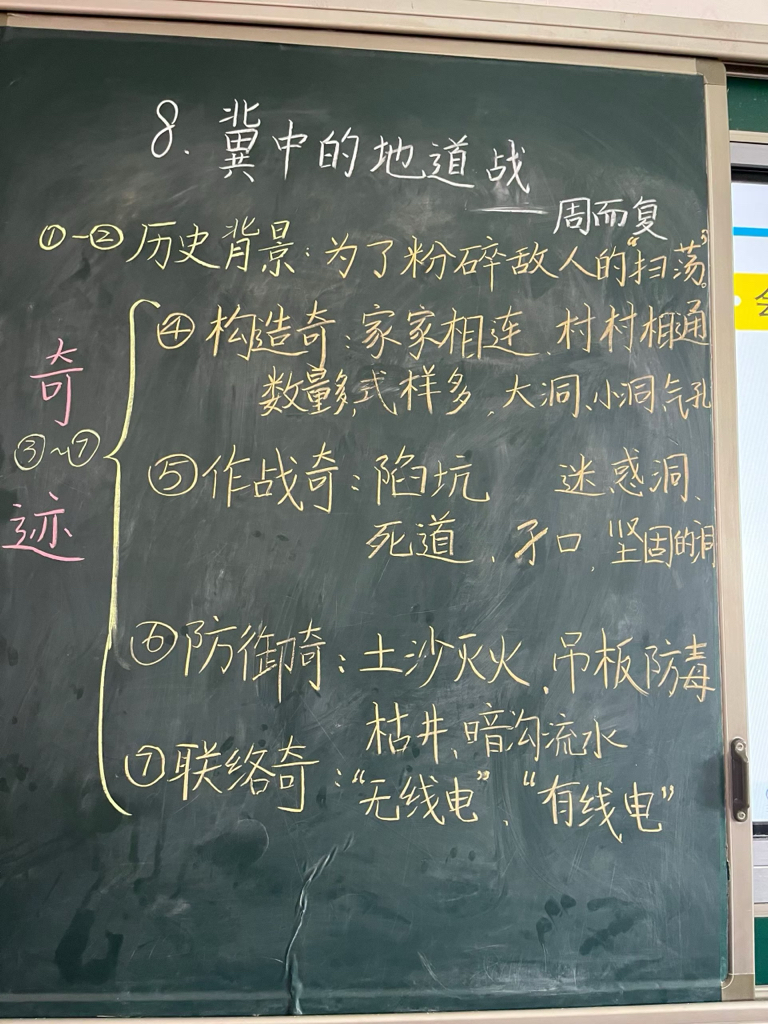 8. 冀中的地道战
——周而复
①-②历史背景:为了粉碎敌人的“扫荡”。
奇迹
③~⑦
④构造奇:家家相连、村村相通
数量多,式样多、大洞、小洞、气孔
⑤作战奇:陷坑 迷惑洞、
死道、孑口、坚固的洞
⑥防御奇:土沙灭火、吊板防毒
枯井、暗沟流水
⑦联络奇:“无线电”、“有线电”